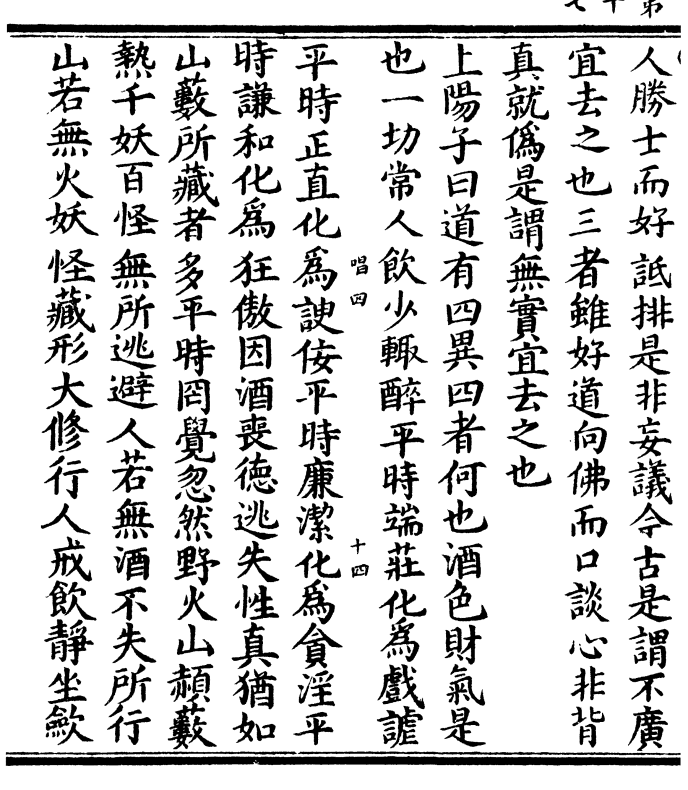 第十七
人勝士而好詆排是非妄議今古是謂不廣
宜去之也三者雖好道向佛而口談心非背
真就偽是謂無實宜去之也
上陽子曰道有四異四者何也酒色財氣是
也一切常人飲少輙醉平時端莊化為戲謔
唱四 十四
平時正直化為諛佞平時廉潔化為貪淫平
時謙和化為狂傲因酒喪德逃失性真猶如
山藪所藏者多平時罔覺忽然野火山頳藪
熱千妖百怪無所逃避人若無酒不失所行
山若無火妖怪藏形大修行人戒飲靜坐歛